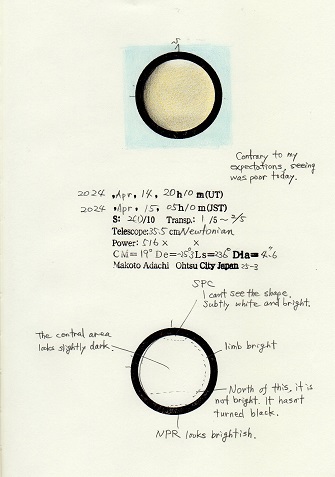 S
Contrary to my
expectations, seeing
was poor today.
2024 , Apr, 14, 20h10m(UT)
2024 , Apr, 15, 05h10m(JST)
S: 2(1)/10 Transp.: 1/5~2/5
Telescope:35.5cm Newtonian
Power: 516 x x
CM=19° De= Ls=236° Dia=4".6
Makoto Adachi Ohtsu City Japan
SPC
I can't see the shape.
Subtly white and bright.
The central area
looks slightly dark.
limb bright
North of this, it is
not bright. It hasn't
turned black.
NPR looks brightish.